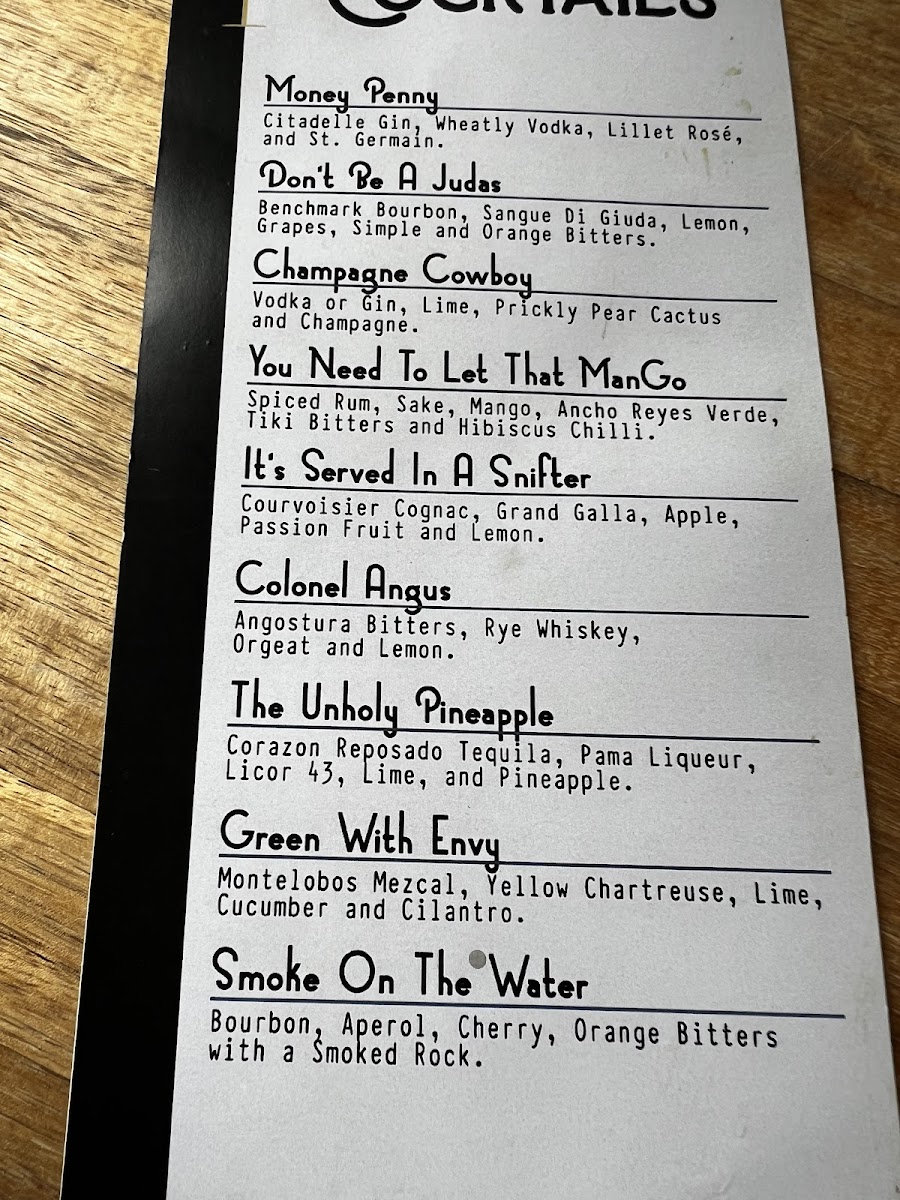 COCKTAILS
Money Penny
Citadelle Gin, Wheatly Vodka, Lillet Rosé,
and St. Germain.
Don't Be A Judas
Benchmark Bourbon, Sangue Di Giuda, Lemon,
Grapes, Simple and Orange Bitters.
Champagne Cowboy
Vodka or Gin, Lime, Prickly Pear Cactus
and Champagne.
You Need To Let That ManGo
Spiced Rum, Sake, Mango, Ancho Reyes Verde,
Tiki Bitters and Hibiscus Chilli.
It's Served In A Snifter
Courvoisier Cognac, Grand Galla, Apple,
Passion Fruit and Lemon.
Colonel Angus
Angostura Bitters, Rye Whiskey,
Orgeat and Lemon.
The Unholy Pineapple
Corazon Reposado Tequila, Pama Liqueur,
Licor 43, Lime, and Pineapple.
Green With Envy
Montelobos Mezcal, Yellow Chartreuse, Lime,
Cucumber and Cilantro.
Smoke On The Water
Bourbon, Aperol, Cherry, Orange Bitters
with a Smoked Rock.